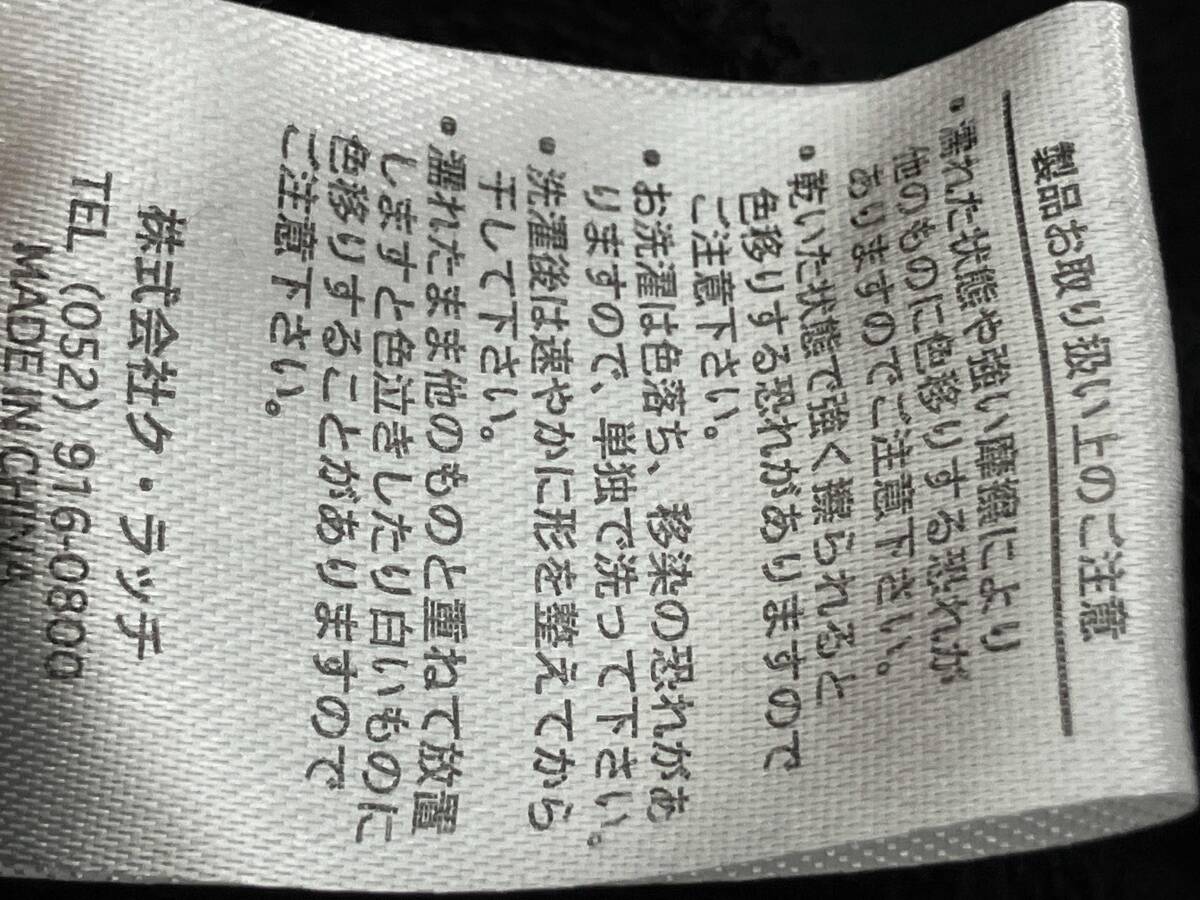 製品お取り扱い上のご注意
・濡れた状態や強い摩擦により
他のものに色移りする恐れが
ありますのでご注意下さい。
・乾いた状態で強く擦られると
色移りする恐れがありますので
ご注意下さい。
・お洗濯は色落ち、移染の恐れがあ
りますので、単独で洗って下さい。
・洗濯後は速やかに形を整えてから
干して下さい。
・濡れたまま他のものと重ねて放置
しますと色泣きしたり白いものに
色移りすることがありますので
ご注意下さい。
株式会社ク・ラッチ
TEL (052) 916-0800
MADE IN CHINA